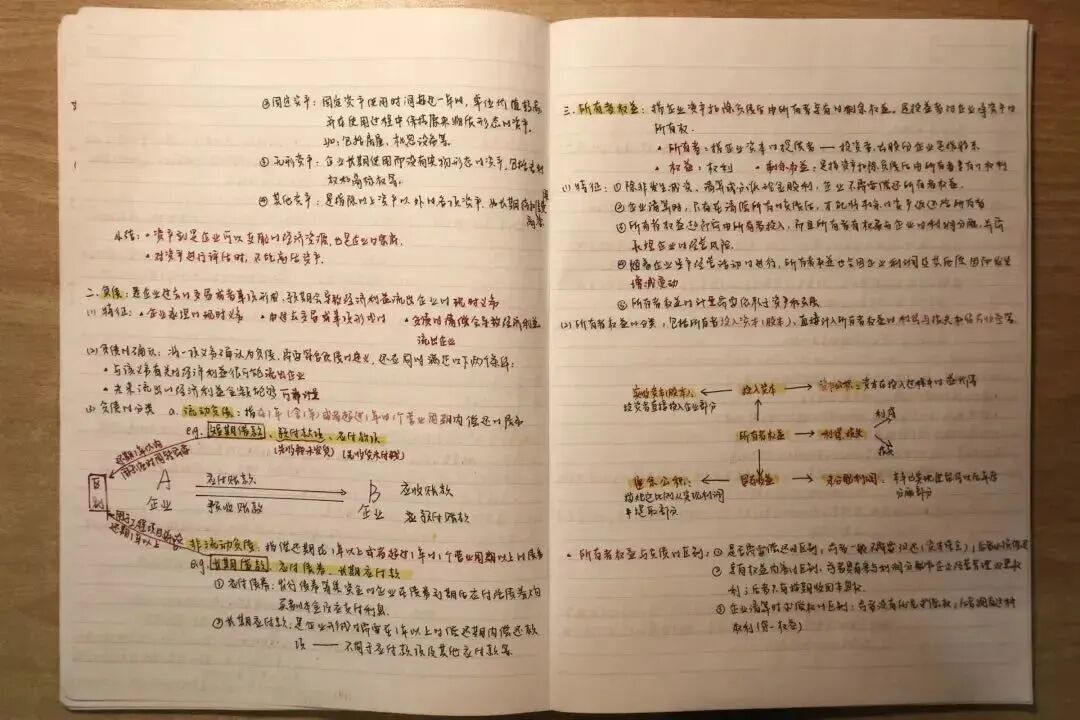 ③固定资产：固定资产使用时间超过一年以，单位价值较高
并在使用过程中保持原来物质形态的资产。
如：包括房屋，机器设备等。
④无形资产：企业长期使用而没有实物形态的资产，包括专利
权和商标权等。
⑤其他资产：是指除以上资产以外的各项资产，如长期待摊费
小结：•资产到是企业可以支配的经济资源，也是企业的
•对资产进行评估时，不能高估资产。
二.负债：是企业过去的交易或者事项形成，预期会导致经济利益流出企业的现时义务
(1)特征：•企业承担的现时义务 •由过去交易或事项形成的 •负债的清偿会导致经济利益
流出企业
(2)负债的确认：将一项义务确认为负债，需要符合负债的定义，还应同时满足以下两个条件：
•与该义务有关的经济利益很可能流出企业
•未来流出的经济利益金额能够可靠计量
(3)负债的分类 a.流动负债：指在1年(含1年)或者超过1年的1个营业周期内偿还的债务
eg.短期借款、预付款项、应付款项
还期1年以内
区别
A 应付账款 B 应收账款
企业 预收账款 企业 预付账款
还期1年以上
非流动负债：指偿还期在1年以上或者超过1年的1个营业周期以上的债务
eg.长期借款、应付债券、长期应付款
①应付债券：发行债券筹集资金的企业在债券到期后应付给债券人的
②长期应付款：是企业形成的需要在1年以上的偿还期内偿还款
项——不同于应付款项及其他应付款等
三.所有者权益：指企业资产扣除负债后由所有者享有的剩余权益。是投资者对企业净资产的
所有权。
•所有者：指企业资本的提供者——投资者，在股份企业是指股东
•权益：权利 •剩余权益：是指资产扣除负债后由所有者享有的权利
(1)特征：①除非发生减资、清算或分派现金股利，企业不需要偿还所有者权益.
②企业清算时，只有在清偿所有的负债后，才能将剩余的资产返还给所有者
③所有者权益是所有者投入，而且所有者有权参与企业的利润分配，并需
承担企业的经营风险.
④随着企业生产经营活动的进行，所有者权益也会因企业利润及其他原因而发生
增减变动
⑤所有者权益的计量需要依赖于资产和负债
(2)所有者权益的分类，包括所有者投入资本(股本)，直接计入所有者权益的利得与损失和留存收益等.
实收资本(股本)： 投入资本 资本公积：资本在投入过程中的溢价等
投资者直接投入企业部分
利得
所有者权益 利得 损失
损失
盈余公积： 留存收益 未分配利润：
指按一定比例从实现利润
中提取部分
•所有者权益与负债的区别：①是否需要偿还的区别，前者一般不需要归还(资本保全)；后者必须偿还
②享有权益内容的区别，前者具有参与利润分配和企业经营管理的
利；后者只有按期收回本息权
③企业清算时求偿权的区别：前者没有优先求偿权；后者拥有这种
权利(第一权益)